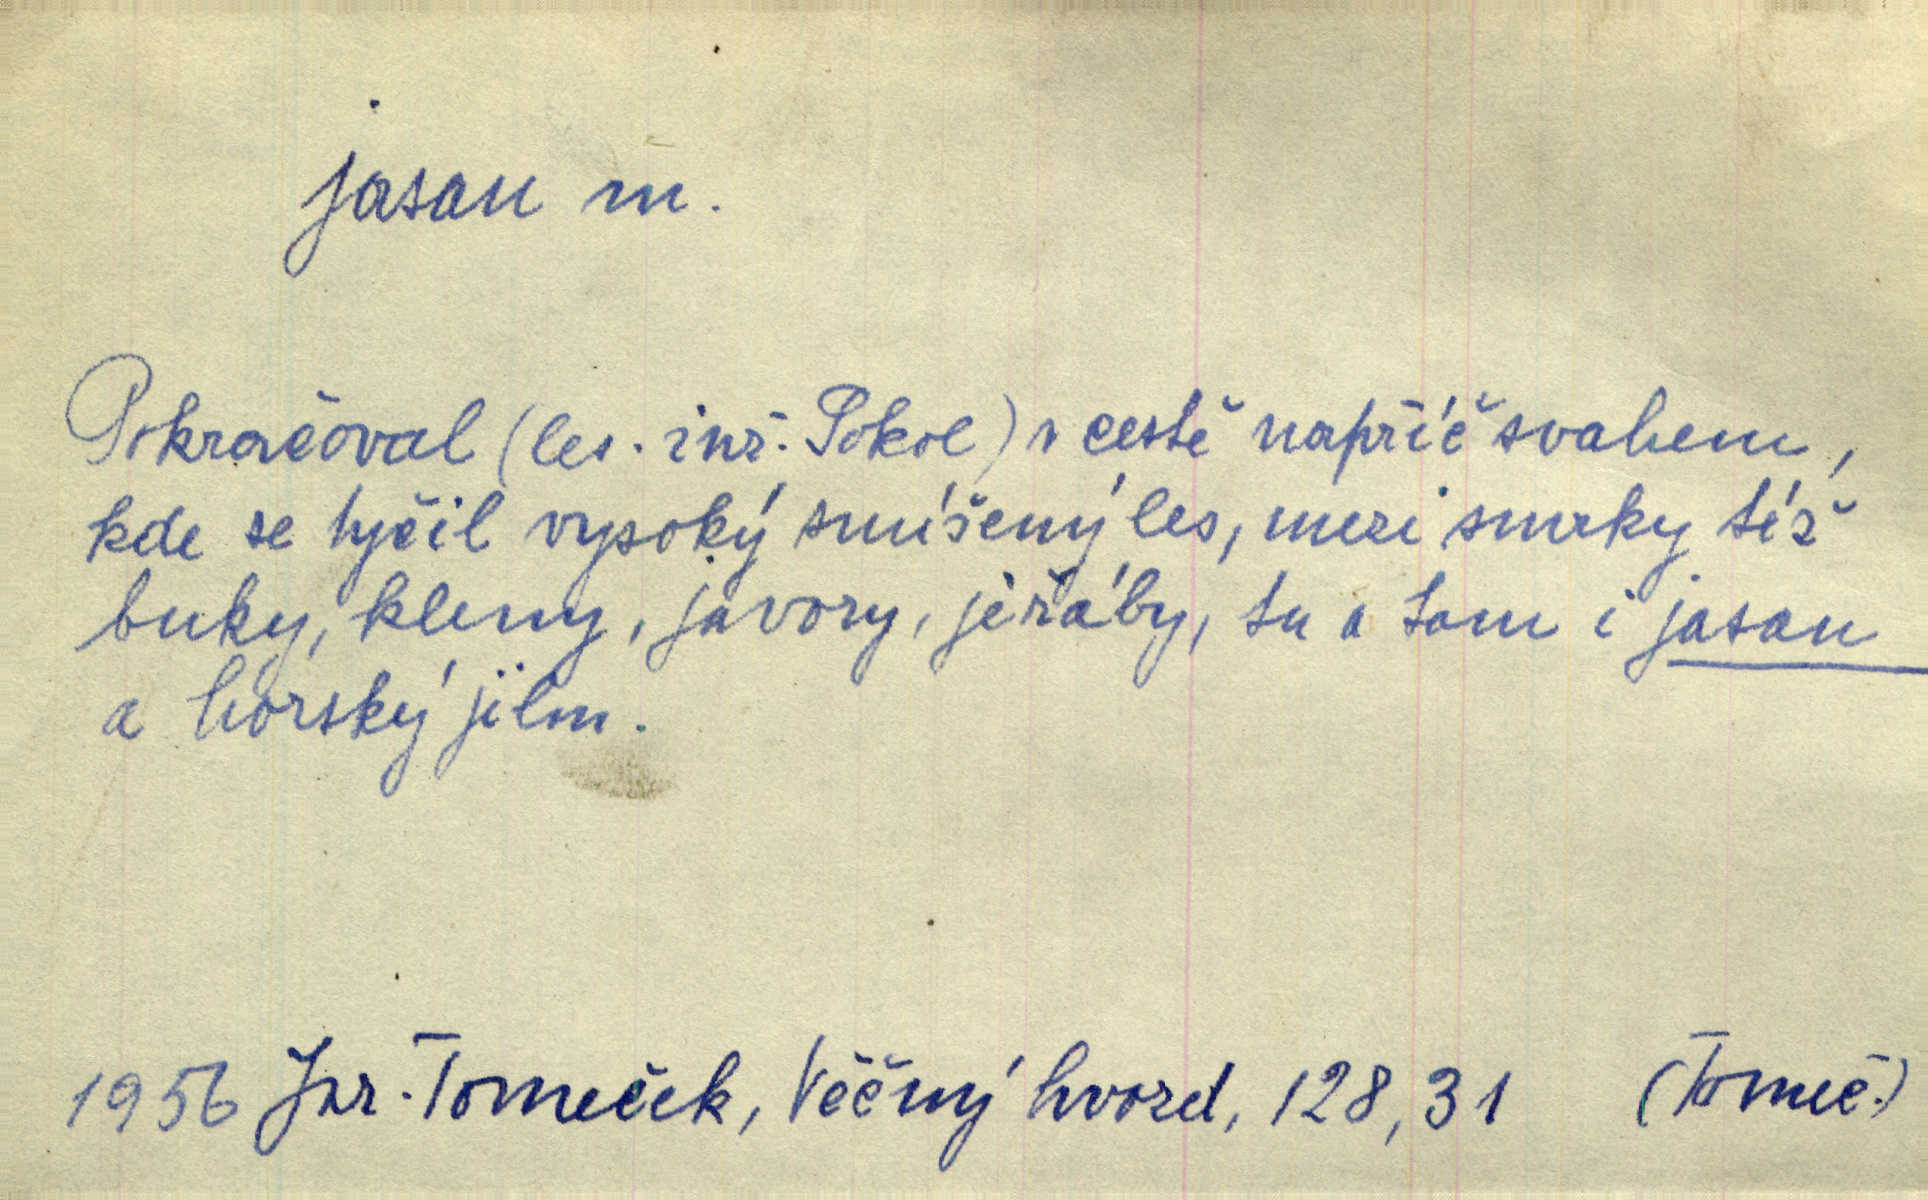 jasan m.
Pokračoval (les. inž. Sokol) v cestě napříč svahem,
kde se tyčil vysoký smíšený les, mezi smrky též
buky, kleny, javory, jeřáby, tu a tam i jasan
a horský jilm.
1956 Jar. Tomeček, Věčný hvozd, 128,31 (Tomeč.)